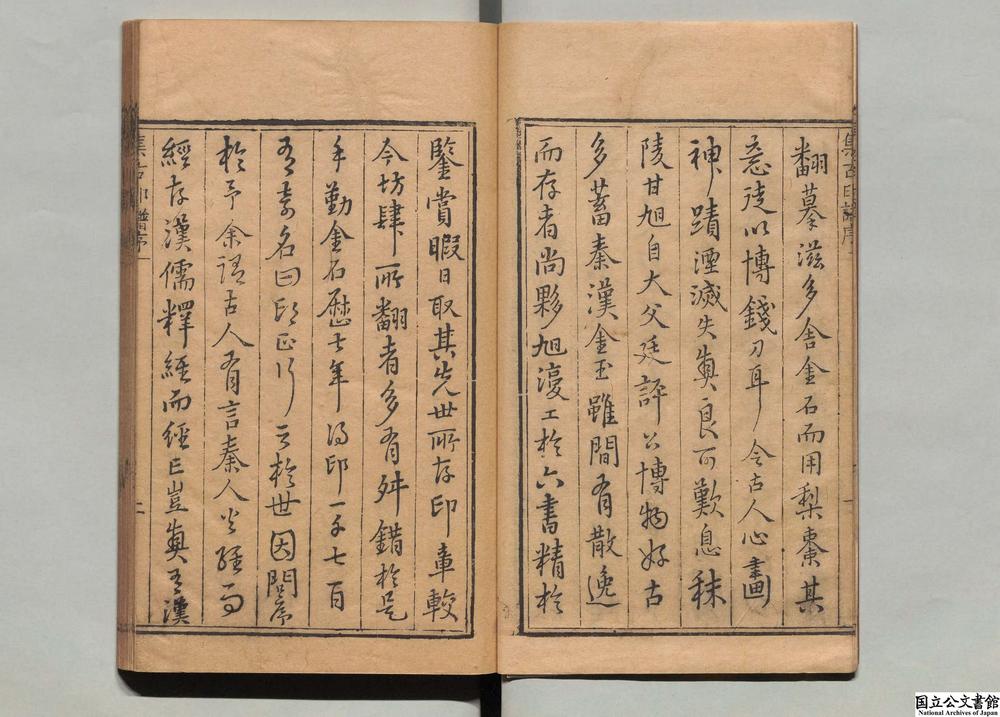 集古印譜序
翻摹滋多舎金石而用梨棗其
意徒以博錢刀耳令古人心畫
神蹟湮滅失真良可歎息秣
陵甘旭自大父廷評公博物好古
多蓄秦漢金玉雖間有散逸
而存者尚夥旭復工於六書精於
鑒賞暇日取其先世所存印章較
今坊肆所翻者多有舛錯於是
手勤金石歷七年得印一千七百
有奇名曰印正行之於世因問序
於予余謂古人有言秦人焚經而
經存漢儒釋經而經亡豈真有漢
集古印譜序
二
国立公文書館
National Archives of Japan